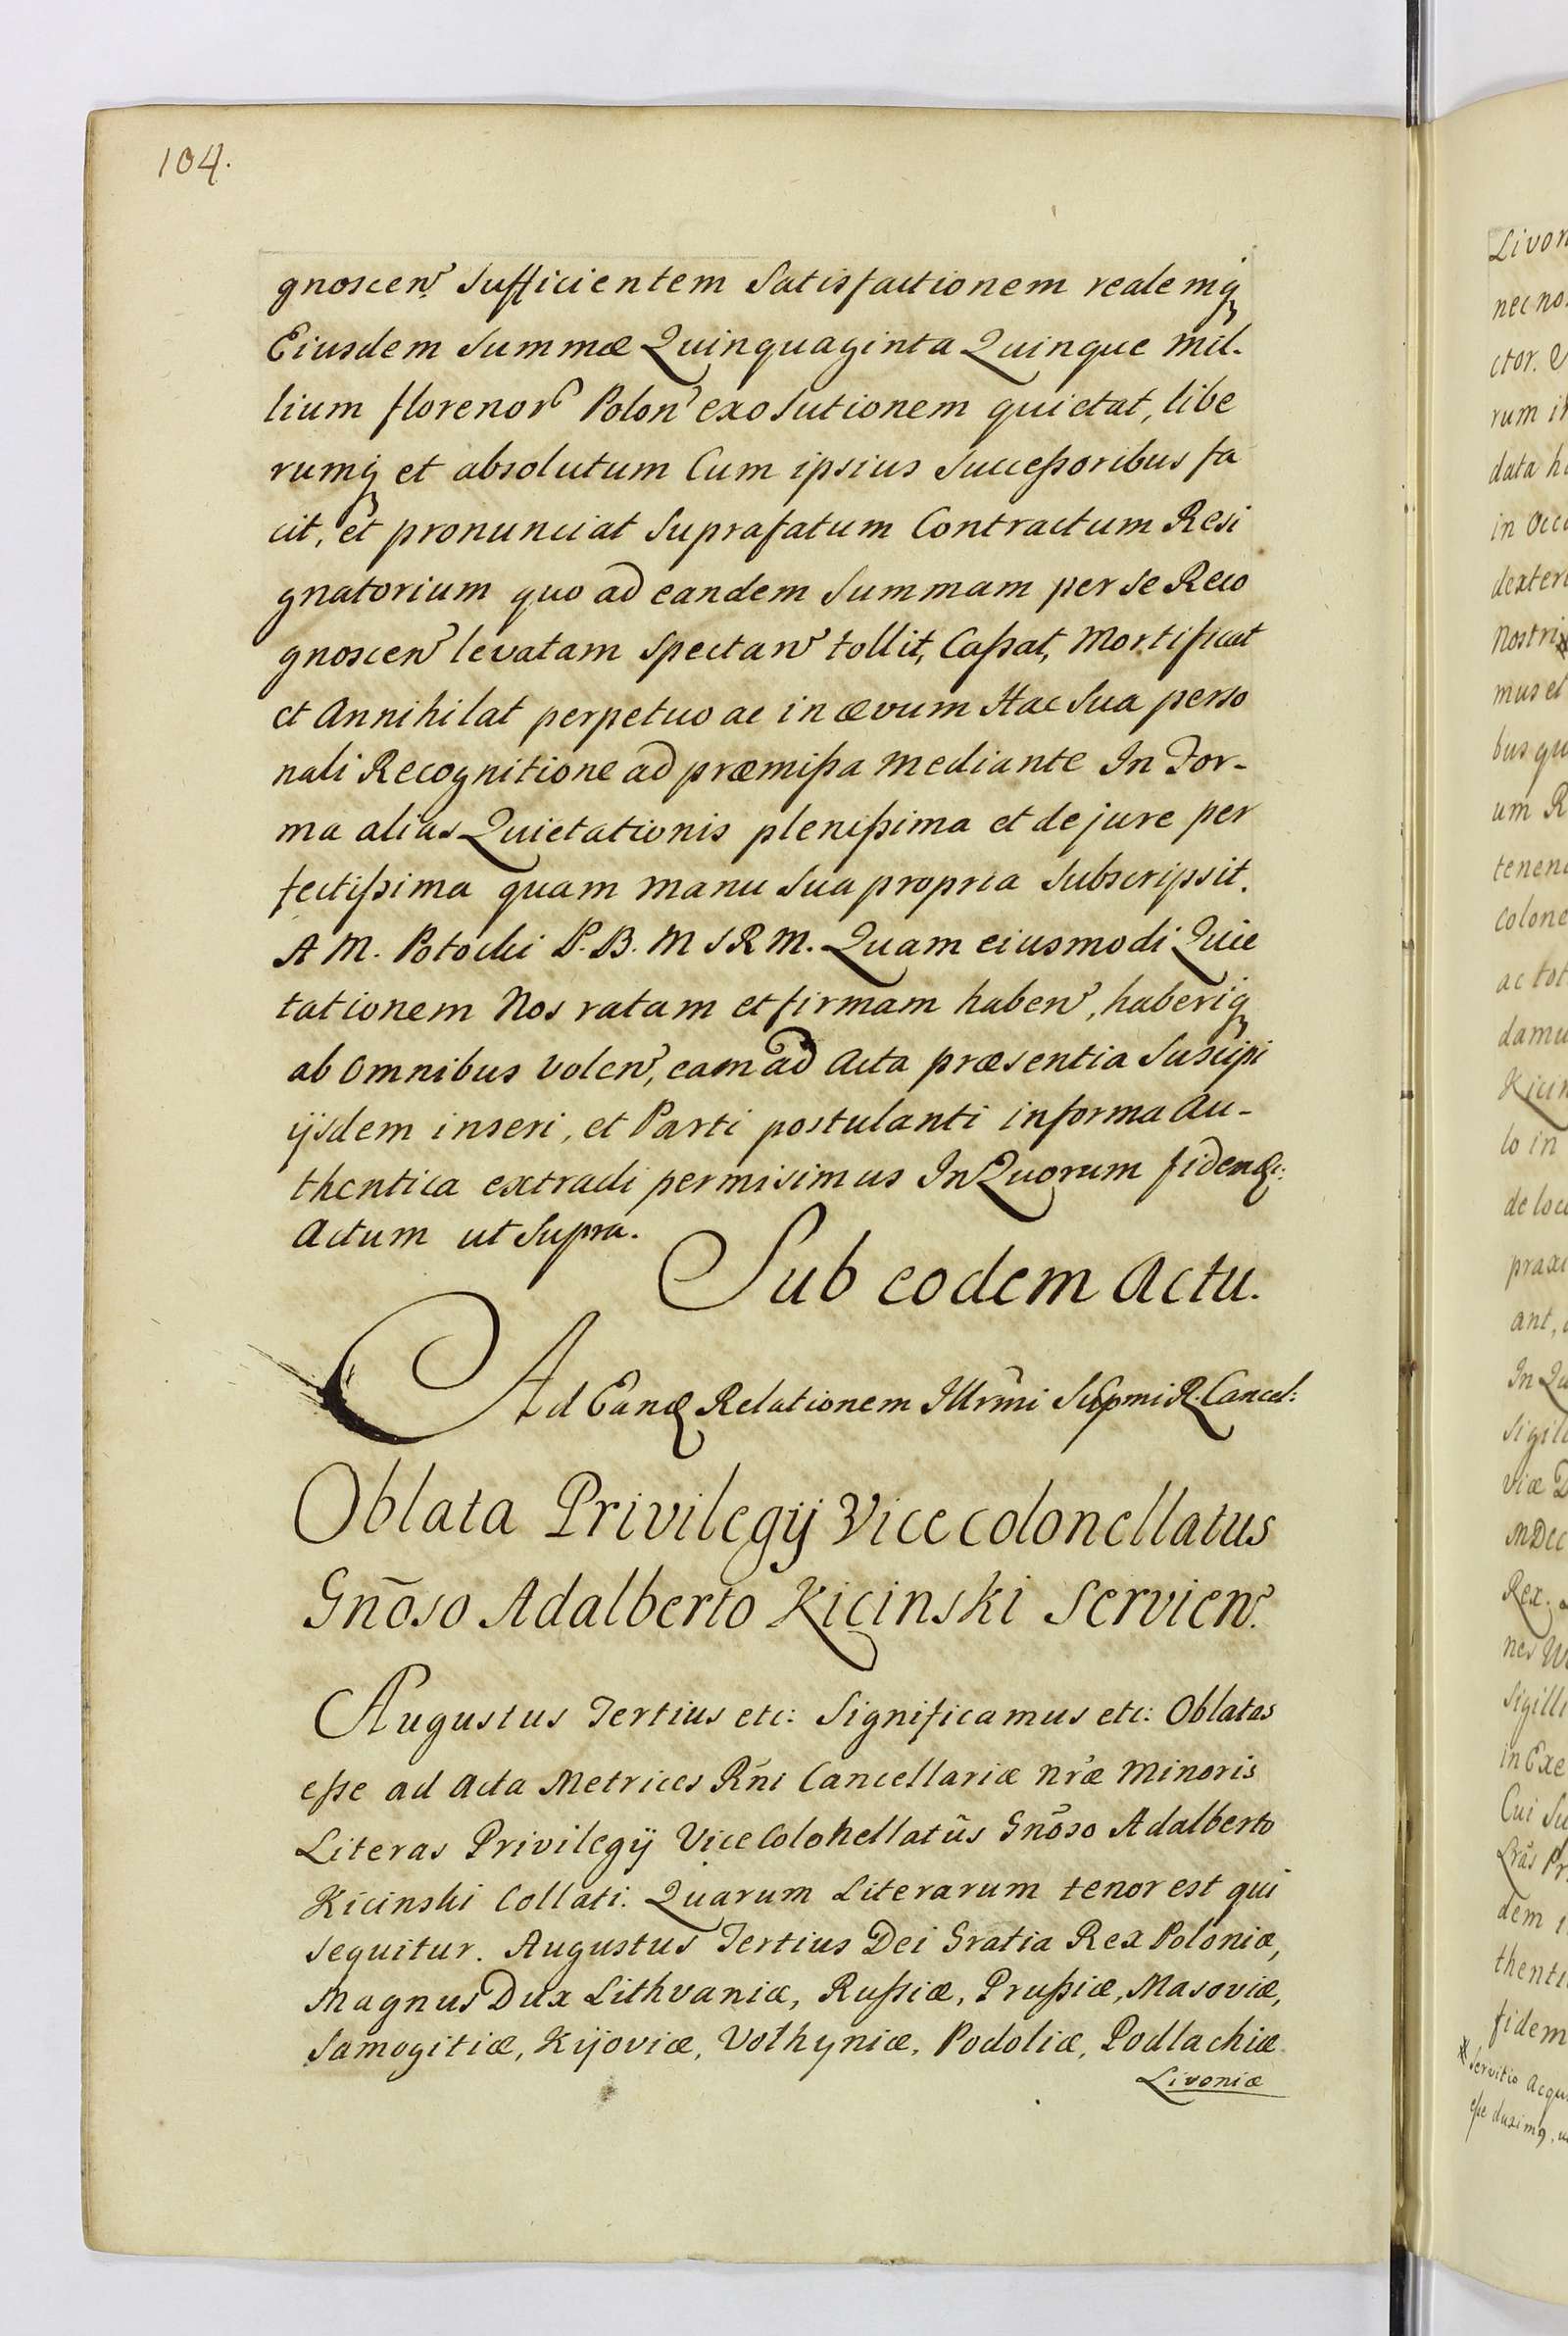 104.
gnoscen̉ Sufficientem Satisfactionem realemq̨
Eiusdem Summæ Quinquaginta Quinque Mil-
lium florenor̉ Polon̉ exolutionem quietat, libe
rumq̨ et absolutum Cum ipsius Successoribus fa
cit, et pronunciat Suprafatum Contractum Resi
gnatorium quo ad eandem Summam per se Reco
gnoscen̉ levatam spectan̉ tollit, Cassat, Mortificat
et Annihilat perpetuo ac in ævum Hac Sua perso
nali Recognitione ad præmissa mediante In For-
ma alias Quietationis plenissima et de jure per
fectissima quam manu Sua propria Subscripsit.
A M. Potocki P. B. M S R M. Quam eiusmodi Quie
tationem Nos ratam et firmam haben̉, haberiq̨
ab Omnibus volen̉, eam ad Acta præsentia Suscipi
ijsdem inseri, et Parti postulanti in forma Au-
thentica extradi permisimus In Quorum fidem &:
Actum ut Supra.
Sub eodem Actu.
Ad Eand Relationem Illrm̃i Supmi R. Cancel:
Oblata Privilegij Vice colonellatus
Gnõso Adalberto Kicinski Servien̉.
Augustus Tertius etc: Significamus etc: Oblatas
esse ad Acta Metrices Rñi Cancellariæ nr̃æ Minoris
Literas Privilegij Vice Colonellatûs Gnõso Adalberto
Kicinski Collati. Quarum Literarum tenor est qui
sequitur. Augustus Tertius Dei Gratia Rex Poloniæ,
Magnus Dux Lithvaniæ, Russiæ, Prussiæ, Masoviæ,
Samogitiæ, Kijoviæ, Volhyniæ, Podoliæ, Podlachiæ
Livoniæ